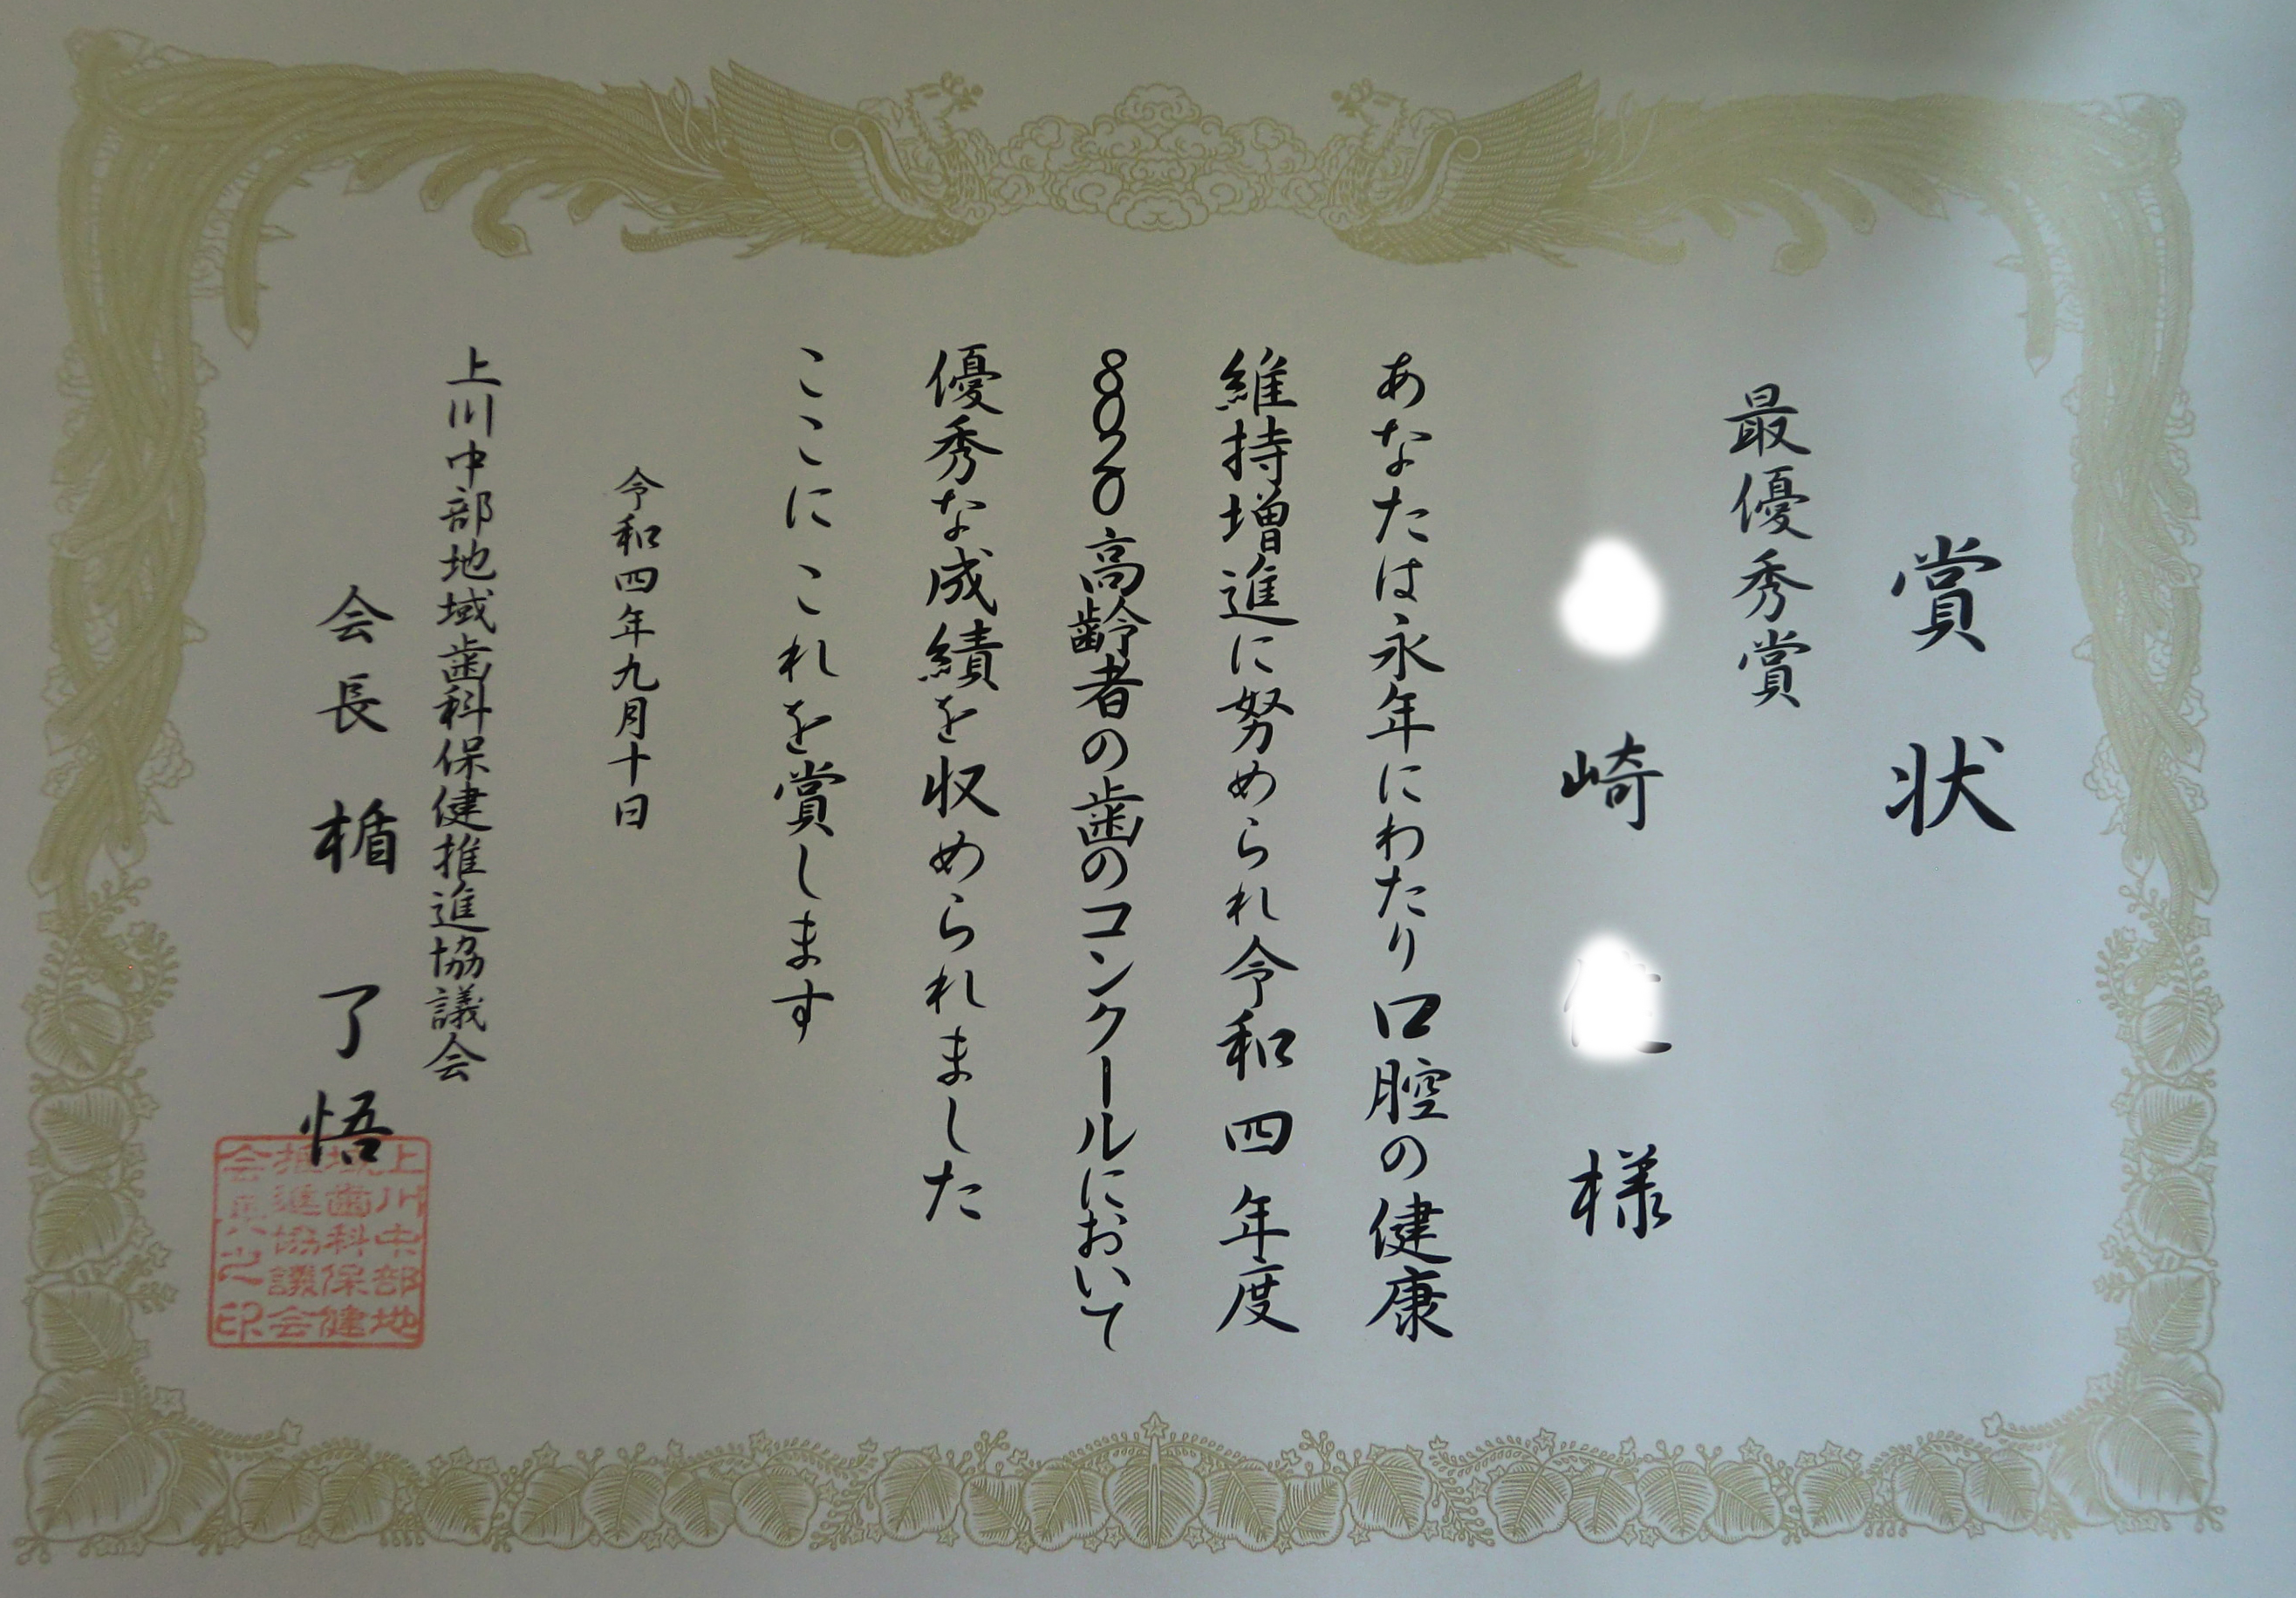 賞状
最優秀賞
崎 様
あなたは永年にわたり口腔の健康
維持増進に努められ令和四年度
8020高齢者の歯のコンクールにおいて
優秀な成績を収められました
ここにこれを賞します
令和四年九月十日
上川中部地域歯科保健推進協議会
会長 楯 了悟
上川中部地
域歯科保健
推進協議会
会長之印